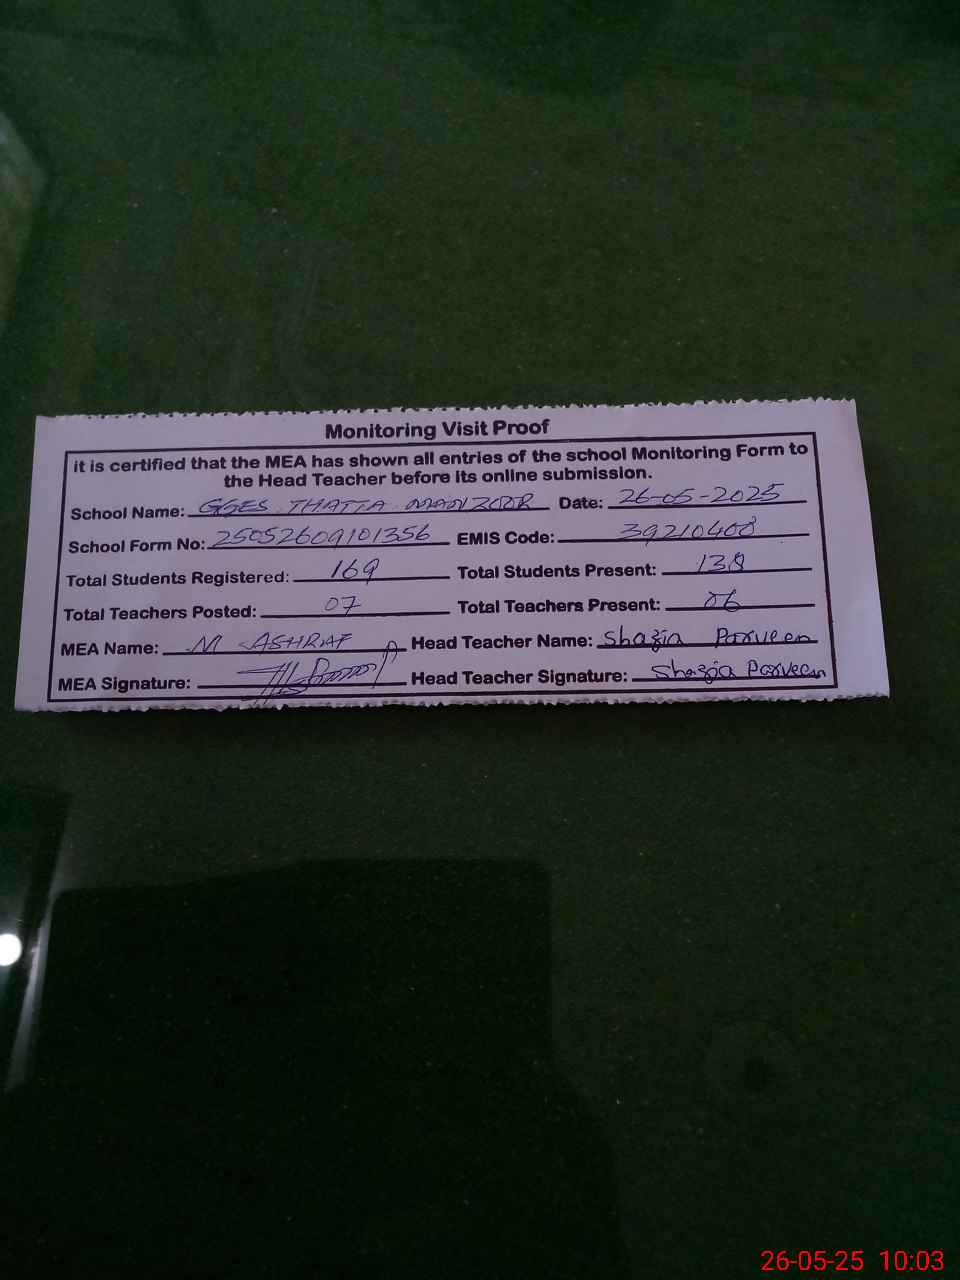 Monitoring Visit Proof
it is certified that the MEA has shown all entries of the school Monitoring Form to
the Head Teacher before its online submission.
School Name: GGES THATTA MANZOOR Date: 26-05-2025
School Form No: 25052609101356 EMIS Code: 39210408
Total Students Registered: 169 Total Students Present: 138
Total Teachers Posted: 07 Total Teachers Present: 06
MEA Name: M ASHRAF Head Teacher Name: Shazia Parveen
MEA Signature: Head Teacher Signature: Shazia Parveen
26-05-25 10:03